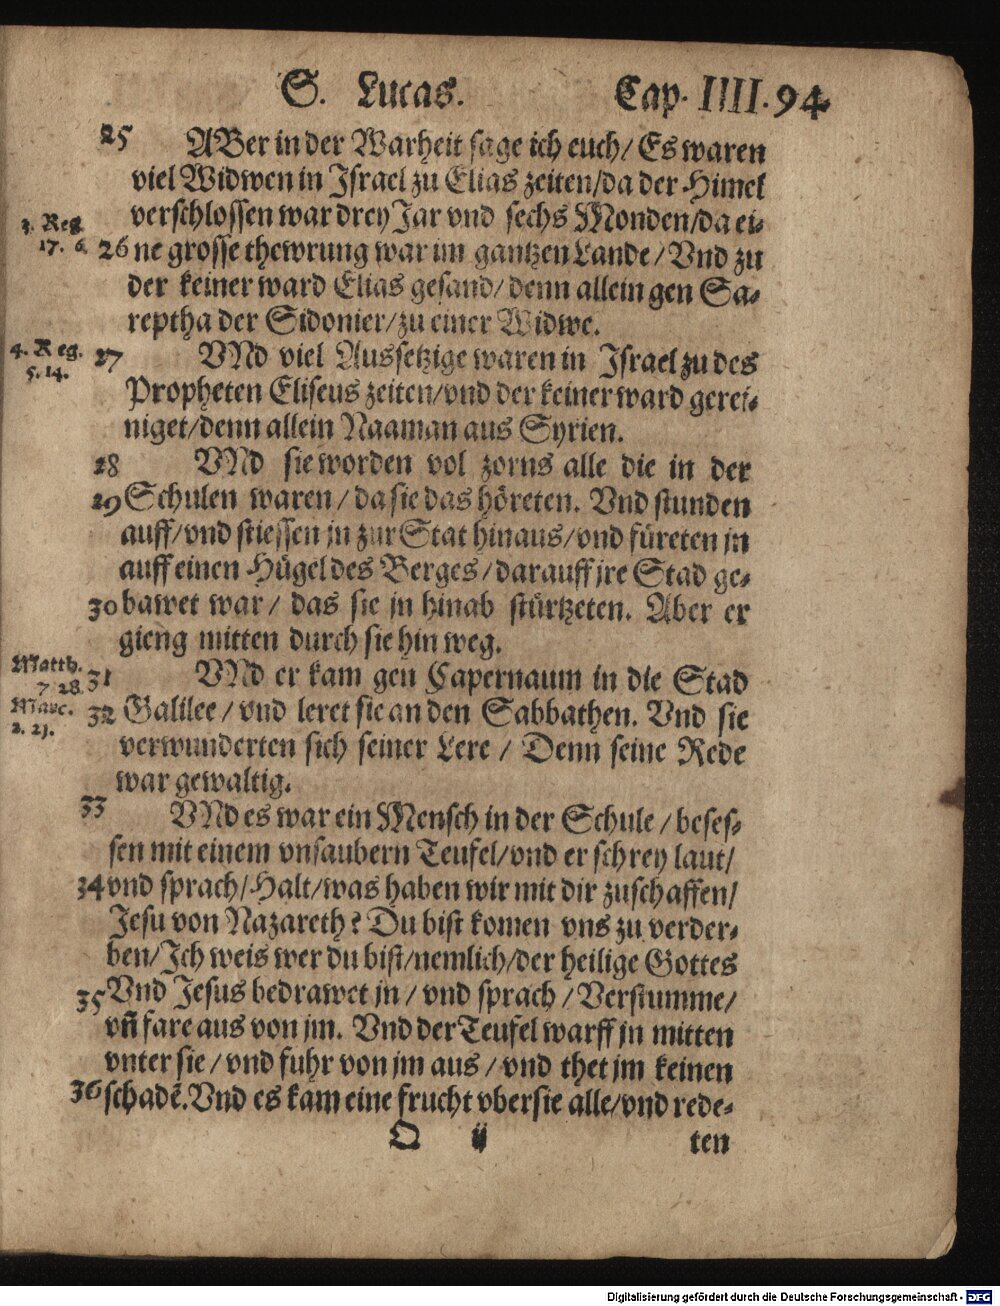 S. Lucas. Cap. IIII. 94.
25 ABer in der Warheit sage ich euch/ Es waren
viel Widwen in Israel zu Elias zeiten/da der Himel
verschlossen war drey Jar vnd sechs Monden/da ei-
3. Reg.
17. 6.
26 ne grosse thewrung war im gantzen Lande/ Vnd zu
der keiner ward Elias gesand/ denn allein gen Sa-
reptha der Sidonier/zu einer Widwe.
4. Reg.
5. 14.
27 VNd viel Aussetzige waren in Israel zu des
Propheten Eliseus zeiten/vnd der keiner ward gerei-
niget/denn allein Naaman aus Syrien.
28 VNd sie worden vol zorns alle die in der
29 Schulen waren/ da sie das höreten. Vnd stunden
auff/vnd stiessen jn zur Stat hinaus/vnd füreten jn
auff einen Hügel des Berges/darauff jre Stad ge-
30 bawet war/ das sie jn hinab stürtzeten. Aber er
gieng mitten durch sie hin weg.
Matth.
7. 28.
31 VNd er kam gen Capernaum in die Stad
Marc.
2. 21.
32 Galilee/ vnd leret sie an den Sabbathen. Vnd sie
verwunderten sich seiner Lere/ Denn seine Rede
war gewaltig.
33 VNd es war ein Mensch in der Schule/ beses-
sen mit einem vnsaubern Teufel/vnd er schrey laut/
34 vnd sprach/Halt/was haben wir mit dir zuschaffen/
Jesu von Nazareth? Du bist komen vns zu verder-
ben/Ich weis wer du bist/nemlich/der heilige Gottes
35 Vnd Jesus bedrawet jn/ vnd sprach/Verstumme/
vñ fare aus von jm. Vnd der Teufel warff jn mitten
vnter sie/vnd fuhr von jm aus/ vnd thet jm keinen
36 schadẽ.Vnd es kam eine frucht vber sie alle/vnd rede-
O ij ten
Digitalisierung gefördert durch die Deutsche Forschungsgemeinschaft - DFG